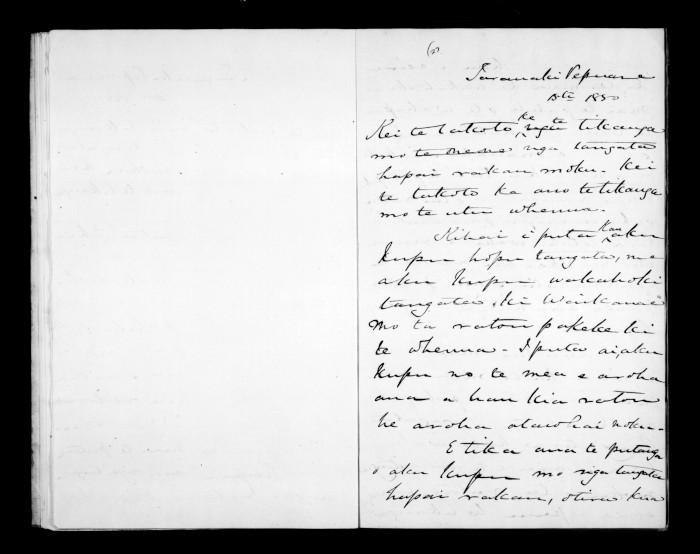 Taranaki Pepuare
13th 1850
Kei te takoto ke te tikanga
mo te nga tangata
hapai rakau moku. Kei
te takoto ka ano te tikanga
mo te utu whenua.
Kihai i puta kau aku
kupu hopu tangata, me
aku kupu wakahoki
tangata, ki Waikanae
mo ta ratou pakeke ki
te whenua. I puta ai, aku
kupu no te mea e aroha
ana a hau kia ratou
he aroha atawhai noku.
E tika ana te putanga
o aku kupu mo nga tangata
hapai rakau, otira kua